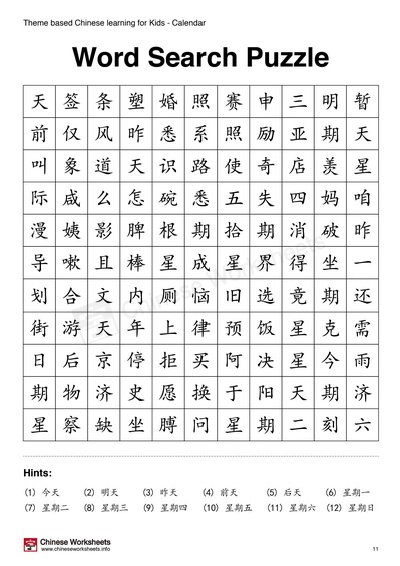 Theme based Chinese learning for Kids - Calendar
Word Search Puzzle
天 签 条 塑 婚 照 赛 申 三 明 暂
前 仅 风 昨 悉 系 照 励 亚 期 天
叫 象 道 天 识 路 使 奇 店 羡 星
际 戚 么 怎 碗 悉 五 失 四 妈 咱
漫 姨 影 脾 根 期 拾 期 消 破 昨
导 嗽 且 棒 星 成 星 界 得 坐 一
划 合 文 内 厕 恼 旧 选 竟 期 还
街 游 天 年 上 律 预 饭 星 克 需
日 后 京 停 拒 买 阿 决 星 今 雨
期 物 济 史 愿 换 于 阳 天 期 济
星 察 缺 坐 膊 问 星 期 二 刻 六
Hints:
(1) 今天 (2) 明天 (3) 昨天 (4) 前天 (5) 后天 (6) 星期一
(7) 星期二 (8) 星期三 (9) 星期四 (10) 星期五 (11) 星期六 (12) 星期日
Chinese Worksheets
www.chineseworksheets.info
11